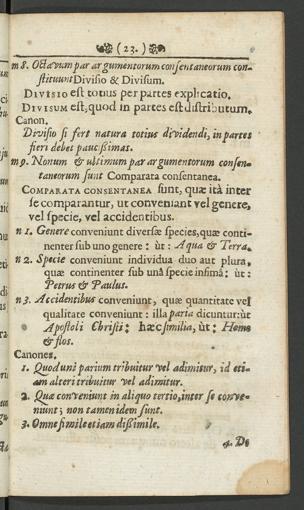 (23.)
m 8. Octavum par argumentorum consentaneorum con-
stituunt Divisio & Divisum.
DIVISIO est totius per partes explicatio.
DIVISUM est, quod in partes est distributum.
Canon.
Divisio si fert natura totius dividendi, in partes
fieri debet paucissimas.
m 9. Nonum & ultimum par argumentorum consen-
taneorum sunt Comparata consentanea.
COMPARATA CONSENTANEA sunt, quæ ità inter
se comparantur, ut conveniant vel genere,
vel specie, vel accidentibus.
n 1. Genere conveniunt diversæ species, quæ conti-
nenter sub uno genere: ùt: Aqua & Terra.
n 2. Specie conveniunt individua duo aut plura,
quæ continenter sub unâ specie infimâ: ùt:
Petrus & Paulus.
n 3. Accidentibus conveniunt, quæ quantitate vel
qualitate conveniunt: illa paria dicuntur: ùt
Apostoli Christi: hæc similia, ùt: Homo
& flos.
Canones.
1. Quod uni parium tribuitur vel adimitur, id eti-
am alteri tribuitur vel adimitur.
2. Quæ conveniunt in aliquo tertio, inter se conve-
niunt; non tamen idem sunt.
3. Omne simile etiam dissimile.
4. De